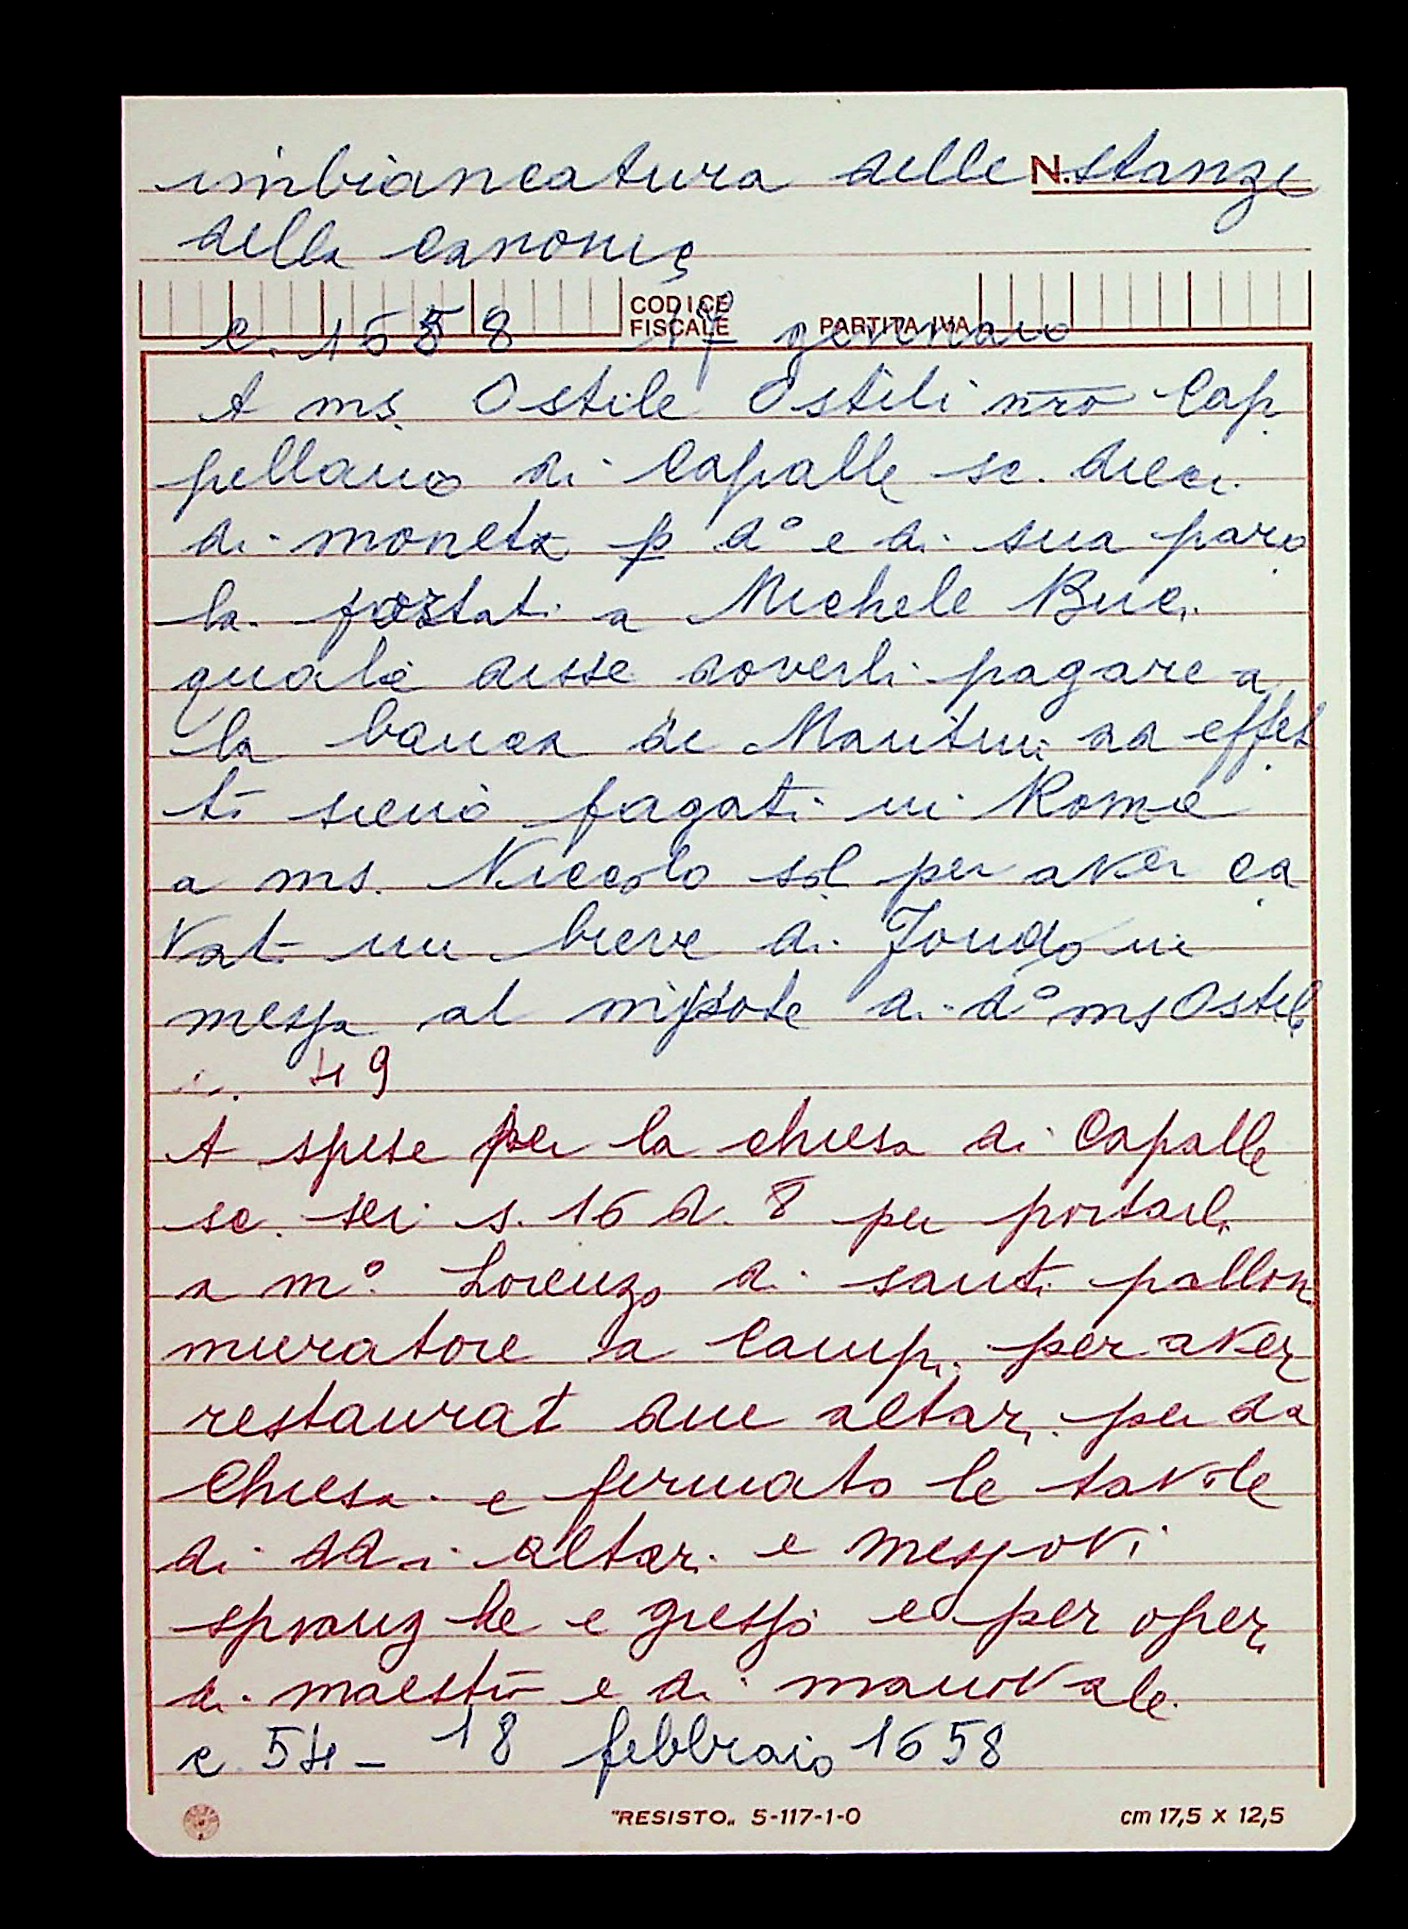 imbiancatura delle N. stanze
della canonic
CODICE FISCALE PARTITA IVA
c. 1658 17 gennaio
A ms. Ostile Ostili nro Cap
pellano di Capalle sc. dieci
di moneta p do e di sua paro
la portati a Michele Buci
quale disse doverli pagare a
la banca de Mantini ad effet
to sieno pagati in Roma
a ms. Niccolo sol per aver ca
vato un breve di
messa al nipote di do ms Ostili
c. 49
A spese per la chiesa di Capalle
sc. sei s. 16 d. 8 per portarli
a mo. Lorenzo di santi palloni
muratore a Campi per aver
restaurat due altari per da
Chiesa e fermato le tavole
di ddi altari e messovi
spranghe e gesso e per opere
di maestro e di manovale.
c. 54 - 18 febbraio 1658
"RESISTO„ 5-117-1-0 cm 17,5 x 12,5